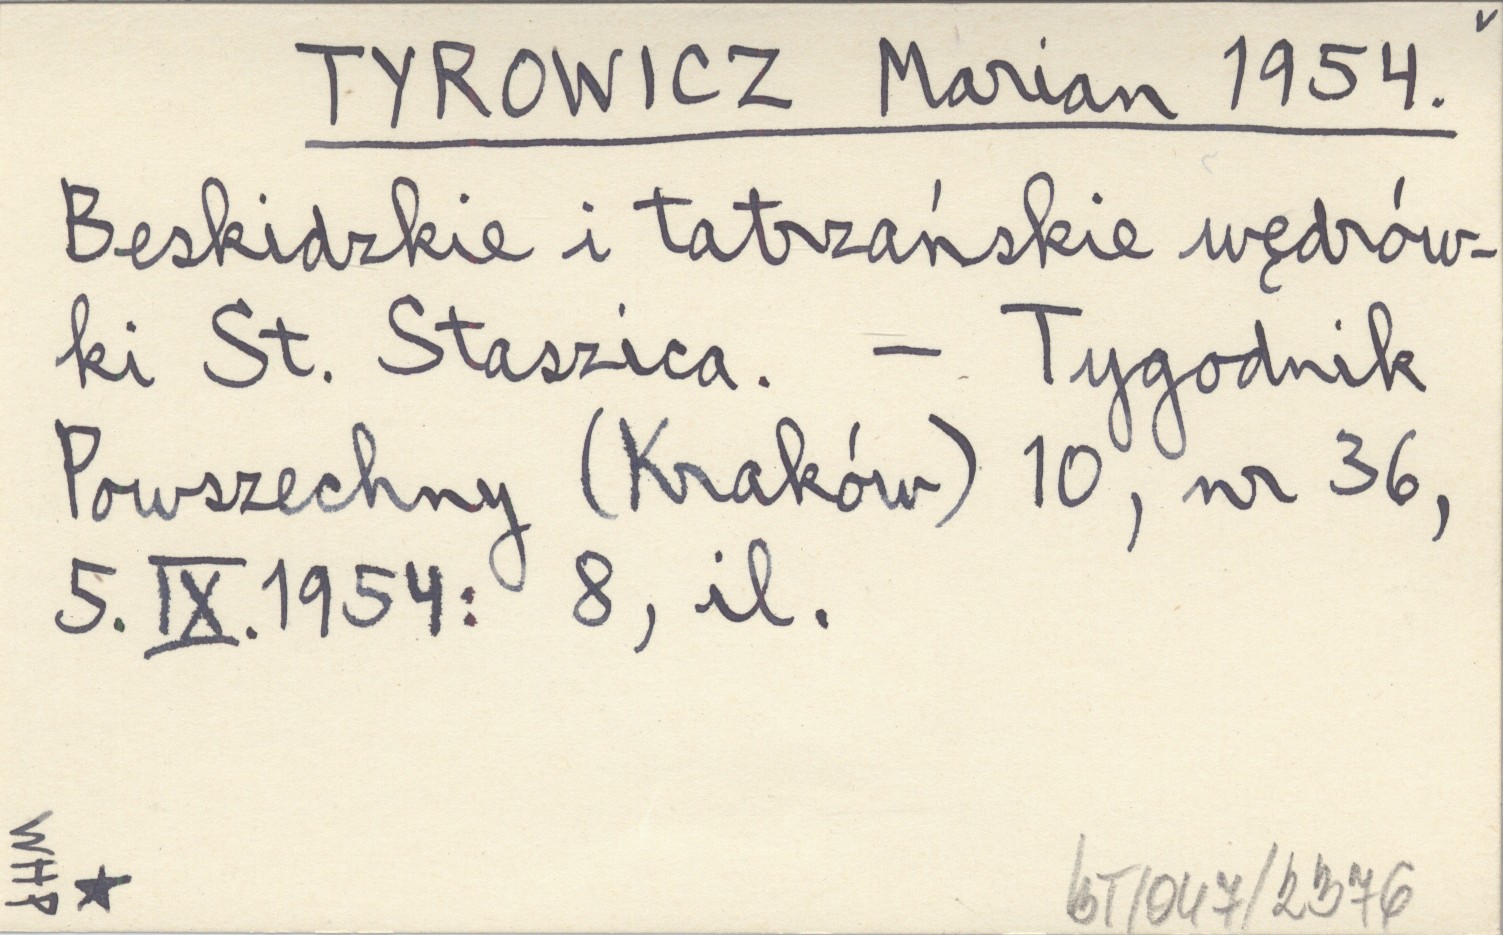 TYROWICZ Marian 1954.
Beskidzkie i tatrzańskie wędrów-
ki St. Staszica. — Tygodnik
Powszechny (Kraków) 10, nr 36,
5.IX.1954: 8, il.
WHP ★
bT/047/2376